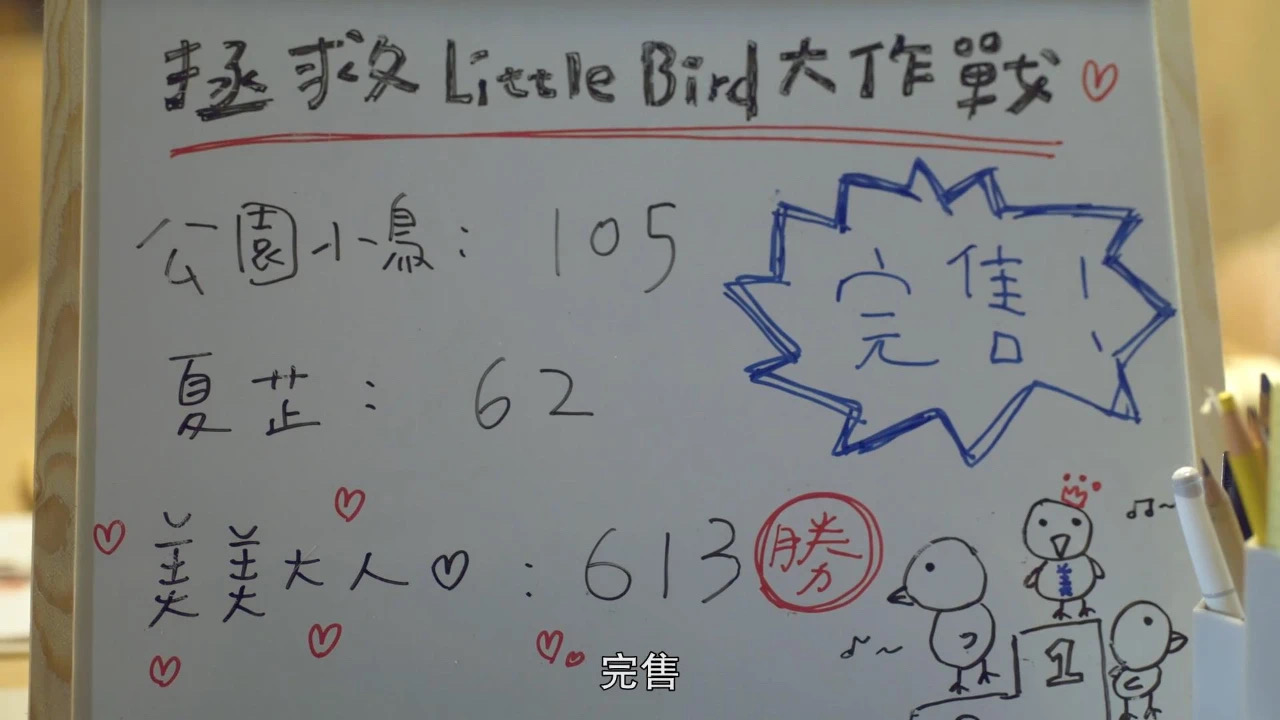 拯救Little Bird大作戰
公園小鳥：105
完售！
夏芷：62
美美大人：613 勝
美
1
完售